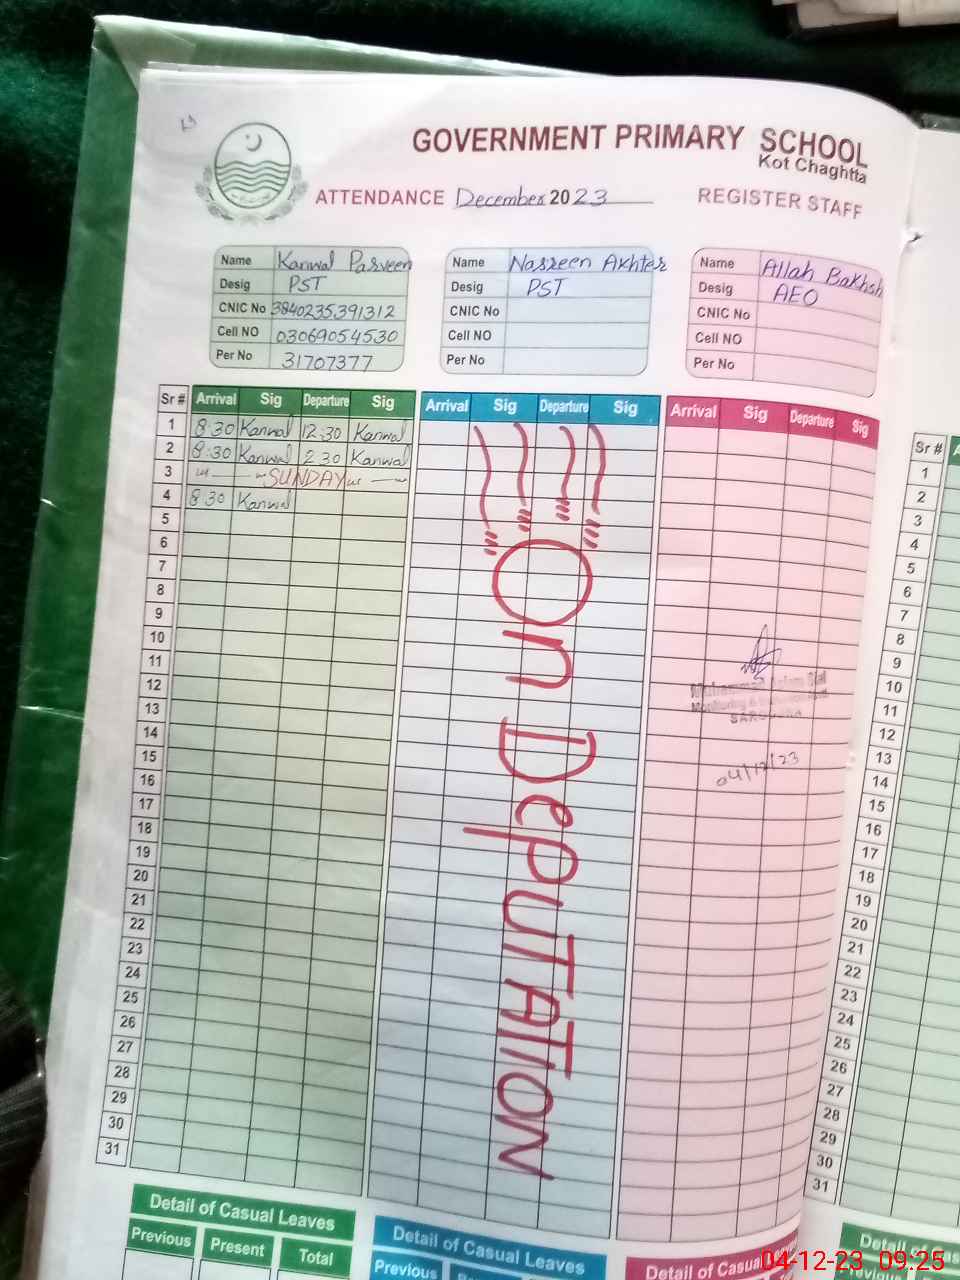 GOVERNMENT PRIMARY SCHOOL
Kot Chaghtta
ATTENDANCE December 2023 REGISTER STAFF
Name Kanwal Parveen
Desig PST
CNIC No 3840235391312
Cell NO 03069054530
Per No 31707377
Name Nasreen Akhter
Desig PST
CNIC No
Cell NO
Per No
Name Allah Bakhsh
Desig AEO
CNIC No
Cell NO
Per No
Sr # Arrival Sig Departure Sig Arrival Sig Departure Sig Arrival Sig Departure Sig
1 8:30 Kanwal 12:30 Kanwal
2 8:30 Kanwal 2 30 Kanwal
3 SUNDAY
4 8 30 Kanwal
5
6
7
8
9
10
11
12
13
14
15
16
17
18
19
20
21
22
23
24
25
26
27
28
29
30
31
On DepUTATION
Muhammad
04/12/23
Sr #
1
2
3
4
5
6
7
8
9
10
11
12
13
14
15
16
17
18
19
20
21
22
23
24
25
26
27
28
29
30
31
Detail of Casual Leaves
Previous Present Total
Detail of Casual Leaves
Previous
Detail of Casual
Detail of Cas
04-12-23 09:25